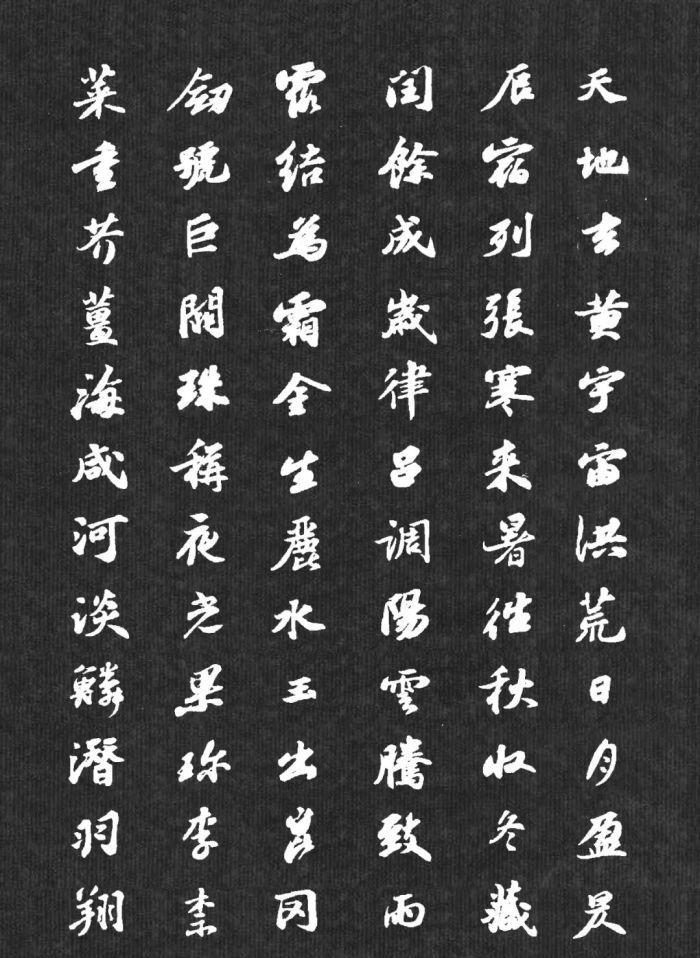 天地玄黄宇宙洪荒日月盈昃
辰宿列張寒来暑往秋收冬藏
閏餘成歲律吕調陽雲騰致雨
露結為霜金生麗水玉出崑岡
劒號巨闕珠稱夜光果珎李柰
菜重芥薑海咸河淡鱗潛羽翔